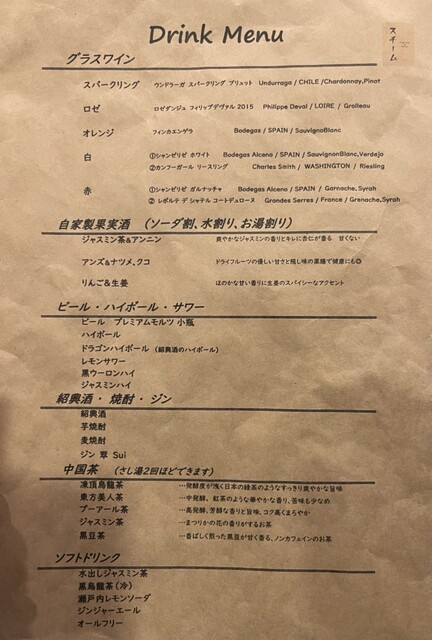 Drink Menu
スチーム
グラスワイン
スパークリング ウンドラーガ スパークリング ブリュット Undurraga / CHILE /Chardonnay,Pinot
ロゼ ロゼダンジュ フィリップデヴァル 2015 Philippe Deval / LOIRE / Grolleau
オレンジ フィンカエンゲラ Bodegas / SPAIN / SauvignonBlanc
白 ①シャンゼリゼ ホワイト Bodegas Alceno / SPAIN / SauvignonBlanc,Verdejo
②カンフーガール リースリング Charles Smith / WASHINGTON / Riesling
赤 ①シャンゼリゼ ガルナッチャ Bodegas Alceno / SPAIN / Garnache,Syrah
② レポルテ デ シャテル コートデュローヌ Grandes Serres / France / Grenache,Syrah
自家製果実酒 (ソーダ割、水割り、お湯割り)
ジャスミン茶&アンニン 爽やかなジャスミンの香りとキレに杏仁が香る 甘くない
アンズ&ナツメ、クコ ドライフルーツの優しい甘さと隠し味の薬膳で健康にも◎
りんご&生姜 ほのかな甘い香りに生姜のスパイシーなアクセント
ビール・ハイボール・サワー
ビール プレミアムモルツ 小瓶
ハイボール
ドラゴンハイボール (紹興酒のハイボール)
レモンサワー
黒ウーロンハイ
ジャスミンハイ
紹興酒・焼酎・ジン
紹興酒
芋焼酎
麦焼酎
ジン 翠 Sui
中国茶 (さし湯2回ほどできます)
凍頂烏龍茶 …発酵度が浅く日本の緑茶のようなすっきり爽やかな旨味
東方美人茶 …中発酵、紅茶のような華やかな香り、苦味も少なめ
プーアール茶 …高発酵、芳醇な香りと旨味、コク高くまろやか
ジャスミン茶 …まつりかの花の香りがするお茶
黒豆茶 …香ばしく煎った黒豆が甘く香る、ノンカフェインのお茶
ソフトドリンク
水出しジャスミン茶
黒烏龍茶(冷)
瀬戸内レモンソーダ
ジンジャーエール
オールフリー